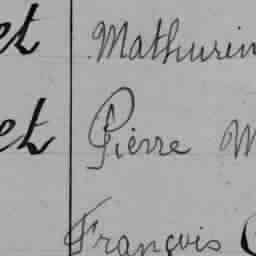 et Mathurin
et Pierre M
François